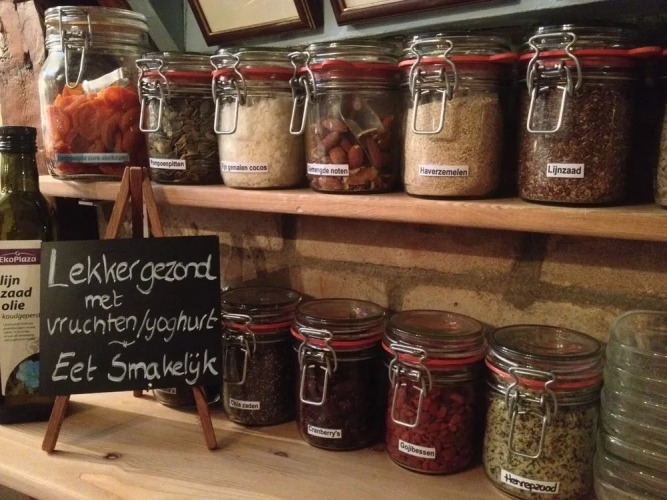 Pompoenpitten
gemalen cocos
Gemengde noten
Haverzemelen
Lijnzaad
EkoPlaza
lijn
zaad
olie
koudgeperst
Lekker gezond
met
vruchten/yoghurt
Eet Smakelijk
Chia zaden
Cranberry's
Gojibessen
Hennepzaad